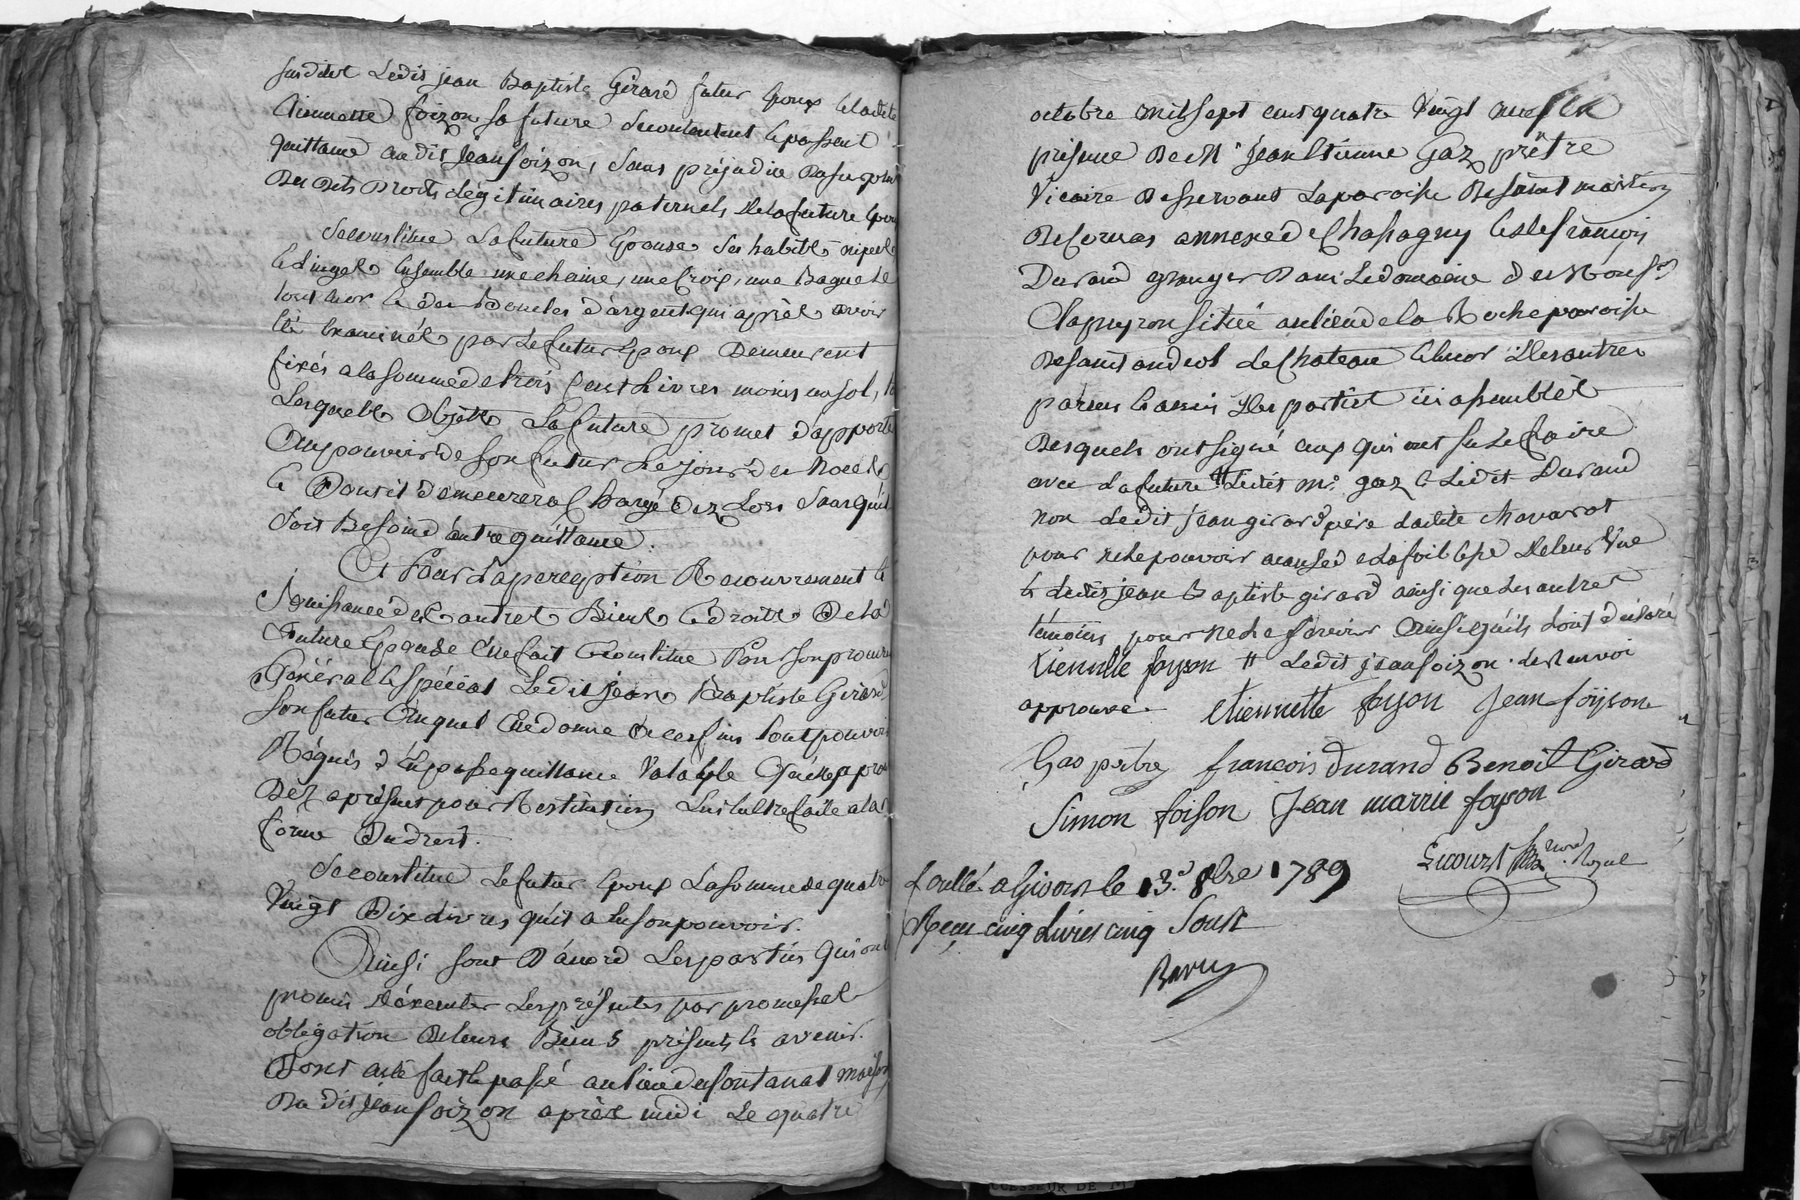 susdits Ledit jean Baptiste Girard futur Epoux & ladite
Etiennette foizon sa future se contentent & passent
quittance au dit Jean foizon, sans préjudice
des dits droits légitimaires paternels de la future Epouse
Se constitue La future Epouse ses habits nipes
& linges Ensemble une chaine, une Croix, une Bague le
tout d'or & des Boucles d'argent qui après avoir
été Examinés par Le futur Epoux Demeurent
fixés a la somme de trois Cent Livres moins un sol,
Lesquels Objets La future promet d'apporter
Au pouvoir de son futur Le jour des Noces
& Dont il demeurera Chargé dez Lors sans qu'il
soit Besoin d'autre quittance.
Et Pour La perception Recouvrement &
Jouissance des autres Biens & droits De la
future Epouse Elle fait & constitue Pour son procureur
Général & spécial Ledit Jean Baptiste Girard
son futur Auquel Elle donne a ces fins tout pouvoir
Réquis d'En passer quittance Valable qu'elle approuve
Dez apresent pour Restitution Lui Estre faite a la
forme Du droit.
Se constitue Le futur Epoux La somme de quatre
Vingt Dix Livres qu'il a En son pouvoir.
Ainsi sont D'acord Les parties qui ont
promis d'éxecuter Les présentes par promesses
obligation de leurs Biens présents & avenir.
Dont acte fait & passé au lieu du fontanat maison
du dit Jean foizon après midi Le quatre
octobre mil sept cent quatre Vingt neuf En
présence De Mr Jean Etienne Gaz prêtre
Vicaire Desservant La paroisse De saint martin
De Cornas annexe de Chassagny & de françois
Durand granger Dans Le domaine de Monsr
Clapeyron situé au lieu de la Roche paroisse
De saint andéol Le Chateau & Encor Des autres
parens & amis Des parties ici assemblés
Desquels ont signé ceux qui ont su Le faire
avec La future # Ledit Mr gaz & Ledit Durand
non Ledit jean girard père Ladite Chavarot
pour ne le pouvoir a cause de la foiblesse De leur Vue
& Ledit jean Baptiste girard ainsi que Les autres
témoins pour ne Le savoir Ainsi qu'ils L'ont déclaré
Etiennette foyson # Ledit jean foizon. Le Renvoi
approuvé. Etiennette foyson Jean foyson
Gas prêtre françois Durand Benoit Girard
Simon foison Jean marrie foyson
Royal
Controllé a Givors le 13e 8bre 1789
Reçu cinq Livres cinq Sous